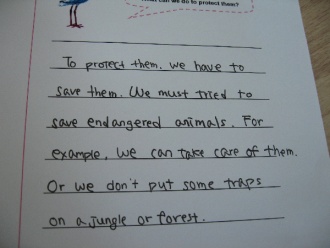 what can we do to protect them?
To protect them, we have to
save them. We must tried to
save endangered animals. For
example, we can take care of them.
Or we don't put some traps
on a jungle or forest.